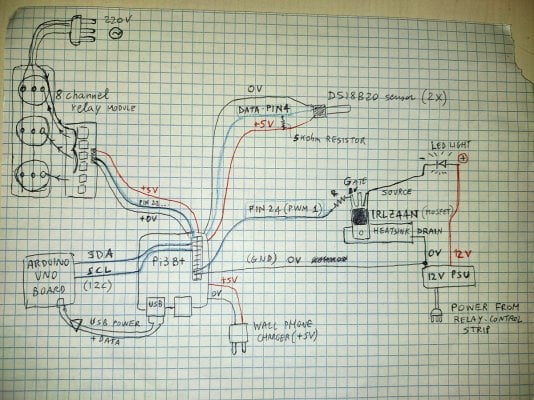 220V
0V
8 channel
relay MODULE
DATA-PIN4
DS18B20 sensor (2x)
+5V
5kohm RESISTOR
LED LIGHT
GATE
SOURCE
R
+5V
PIN 22...
+0V
PIN 24 (PWM 1)
IRLZ44N (MOSFET)
HEATSINK
DRAIN
ARDUINO
UNO
BOARD
SDA
SCL
(I2C)
Pi 3B+
(GND) 0V
0V
12V
12V PSU
USB
+5V
0V
USB POWER
+ DATA
WALL PHONE
CHARGER (+5V)
POWER FROM
RELAY-CONTROL
STRIP